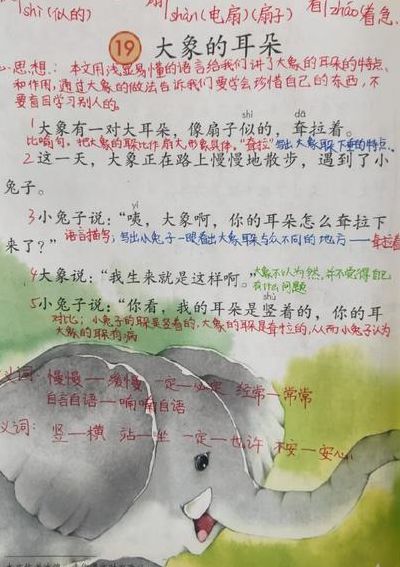 shì(似的) shàn(电扇)(扇子) 着 zháo着急
19 大象的耳朵
思想:本文用浅显易懂的语言给我们讲了大象的耳朵的特点
和作用,通过大象的做法告诉我们要学会珍惜自己的东西,不
要盲目学习别人的。
shì dā
1大象有一对大耳朵,像扇子似的,耷拉着。
比喻句,把大象的耳朵比作扇大,形象具体,“耷拉”写出大象耳朵下垂的特点.
2这一天,大象正在路上慢慢地散步,遇到了小
兔子。
yí
3小兔子说:“咦,大象啊,你的耳朵怎么耷拉下
来了?”语言描写:写出小兔子一眼看出大象耳朵与众不同的地方——耷拉着
4大象说:“我生来就是这样啊。”大象不以为然,并不觉得自己
有什么问题
shù
5小兔子说:“你看,我的耳朵是竖着的,你的耳
对比:小兔子的耳朵是竖着的,大象的耳朵是耷拉的,从而小兔子认为
大象的耳朵有病
义词:慢慢—缓慢 一定—必定 经常—常常
自言自语—喃喃自语
义词:竖—横 站—坐 一定—也许 不安—安心